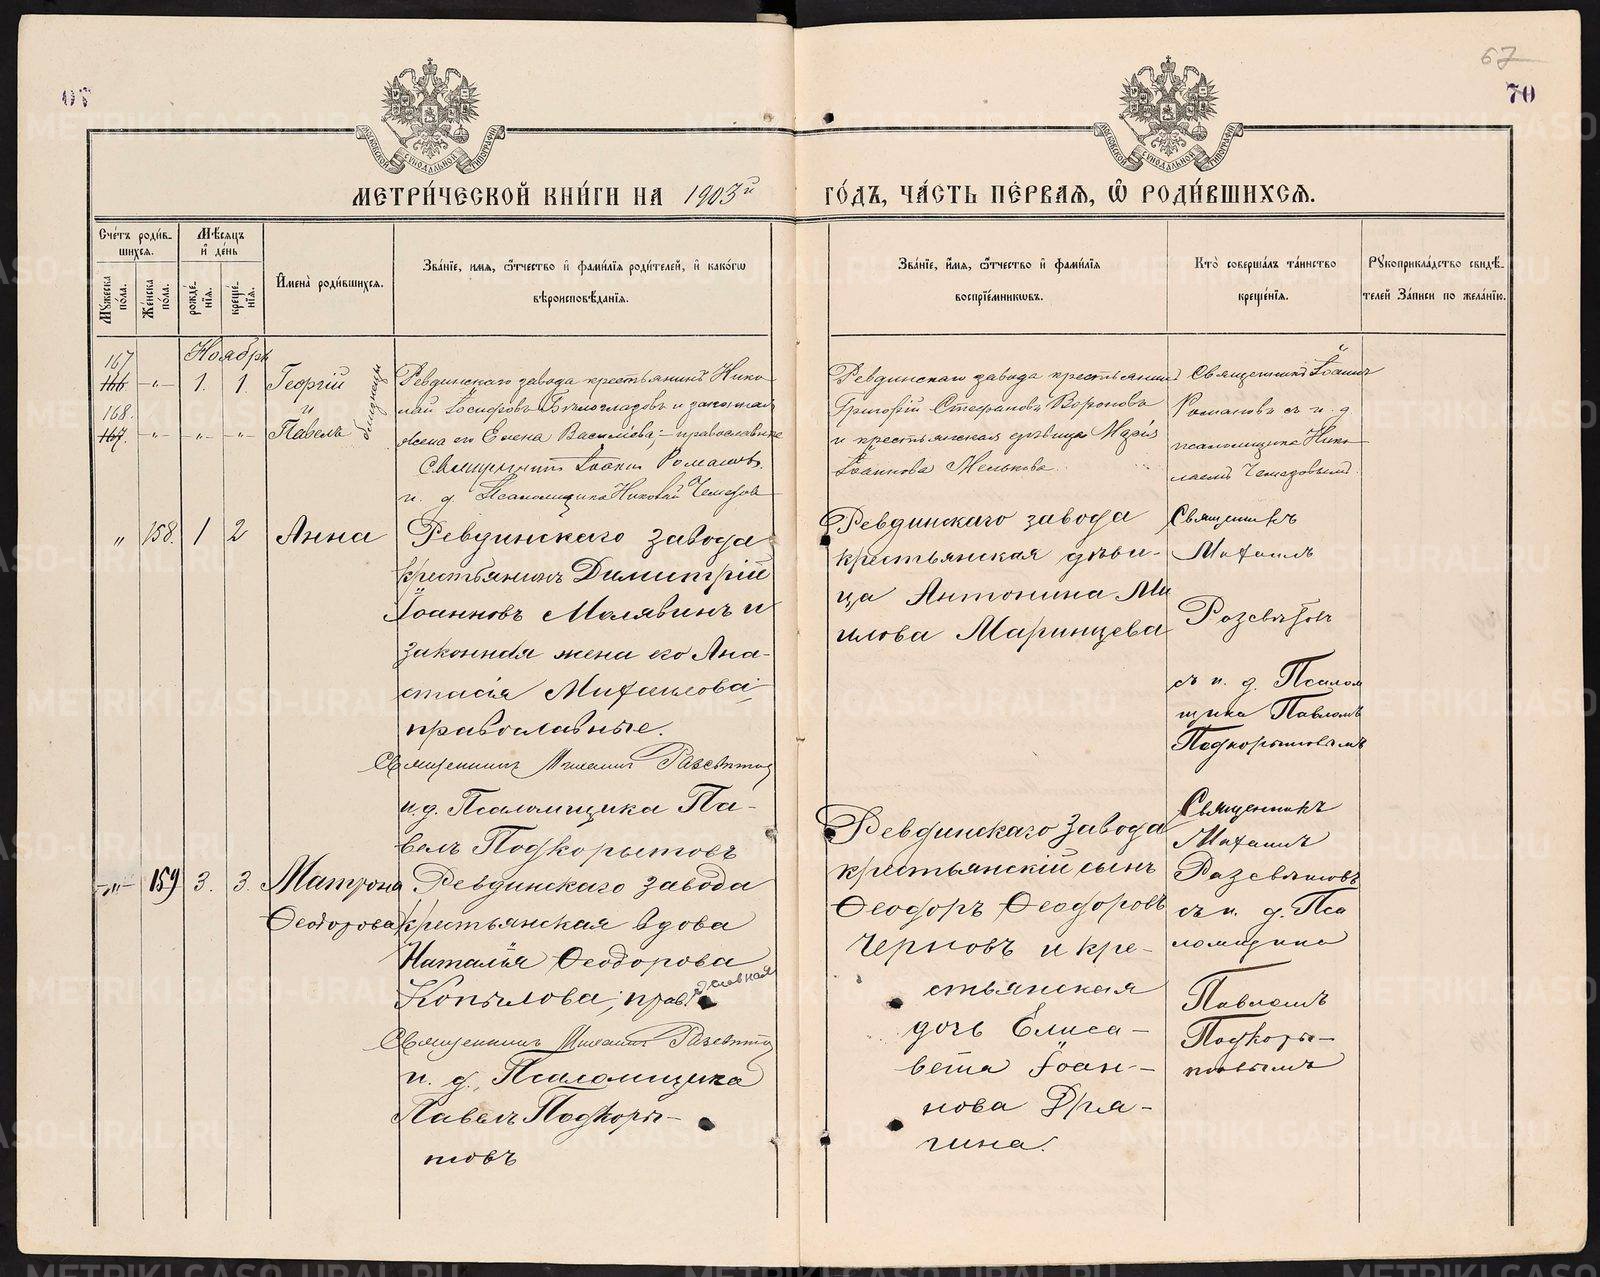 67
70
МЕТРИ́ЧЕСКОЙ КНИ́ГИ НА 1903й ГО́ДЪ, ЧА́СТЬ ПЕ́РВАЯ, Ѡ РОДИ́ВШИХСЯ.
Сче́тъ роди́вшихся.
Мꙋ́жеска по́ла.
Же́нска по́ла.
Мѣ́сяцъ и҆ де́нь
рожде́нїя.
креще́нїя.
И҆мена̀ роди́вшихся.
Зва́нїе, и҆мя, ѻ҆́тчество и҆ фами́лїя роди́телей, и҆ како́гѡ
вѣроисповѣ́данїя.
Зва́нїе, и҆́мя, ѻ҆́тчество и҆ фами́лїя
воспрїе́мникѡвъ.
Кто̀ соверша́лъ та́инство
креще́нїя.
Рꙋкоприкла́дство свидѣ́-
телей За́писи по жела́нїю.
Ноябрь
167
166 -"- 1. 1. Георгій
и
168.
167. -"- -"- -"- Павелъ
близнецы
Ревдинскаго завода крестьянинъ Нико-
лай Іосифовъ Бѣлоглазовъ и законная
жена его Елена Василіева; – православные
Священникъ Іоаннъ Романовъ
и. д. Псаломщика Николай Чемезов
Ревдинскаго завода крестьянинъ
Григорій Стефановъ Вороновъ
и крестьянская дѣвица Марія
Іоаннова Мелькова.
Священникъ Іоаннъ
Романовъ съ и. д
псаломщика Нико-
лаемъ Чемезовымъ.
" 158. 1 2 Анна
Ревдинскаго завода
крестьянинъ Димитрій
Іоанновъ Малявинъ и
законная жена его Ана-
стасія Михаилова,
православные.
Священникъ Михаилъ Разсвѣтов
и.д. Псаломщика Па-
велъ Подкорытовъ
Ревдинскаго завода
крестьянская дѣви-
ца Антонина Ми
илова Маринцева
Священникъ
Михаилъ
Разсвѣтовъ
съ и. д. Псалом
щика Павломъ
Подкорытовымъ
-"- 159 3. 3. Матрона
Ѳеодорова
Ревдинскаго завода
крестьянская вдова
Наталья Ѳеодорова
Копылова; православная
Священникъ Михаилъ Разсвѣтов
и. д. Псаломщика
Павелъ Подкоры-
товъ
Ревдинскаго завода
крестьянскій сынъ
Ѳеодоръ Ѳеодоровъ
Черновъ и кре-
стьянская
дочь Елиса-
вета Іоан-
нова Дря-
гина.
Священникъ
Михаилъ
Разсвѣтовъ
съ и. д. Пса
ломщика
Павломъ
Подкоры-
товымъ